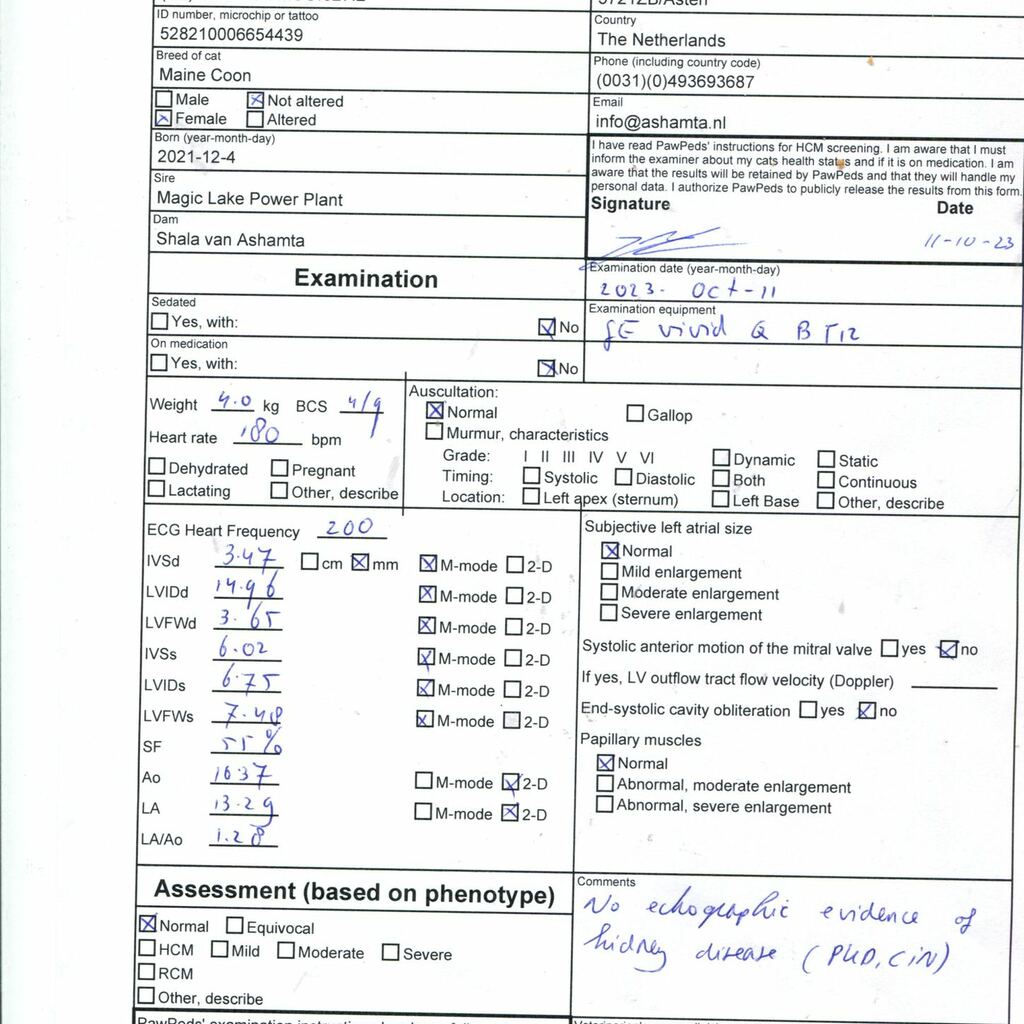 ID number, microchip or tattoo
528210006654439
Country
The Netherlands
Breed of cat
Maine Coon
Phone (including country code)
(0031)(0)493693687
Male Not altered
Female Altered
Email
info@ashamta.nl
Born (year-month-day)
2021-12-4
Sire
Magic Lake Power Plant
Dam
Shala van Ashamta
I have read PawPeds' instructions for HCM screening. I am aware that I must
inform the examiner about my cats health status and if it is on medication. I am
aware that the results will be retained by PawPeds and that they will handle my
personal data. I authorize PawPeds to publicly release the results from this form.
Signature Date
11-10-23
Examination
Examination date (year-month-day)
2023- Oct-11
Sedated
Yes, with: No
Examination equipment
GE vivid Q BT12
On medication
Yes, with: No
Weight 4.0 kg BCS 4/9
Heart rate 180 bpm
Dehydrated Pregnant
Lactating Other, describe
Auscultation:
Normal Gallop
Murmur, characteristics
Grade: I II III IV V VI Dynamic Static
Timing: Systolic Diastolic Both Continuous
Location: Left apex (sternum) Left Base Other, describe
ECG Heart Frequency 200
IVSd 3.47 cm mm M-mode 2-D
LVIDd 14.96 M-mode 2-D
LVFWd 3.65 M-mode 2-D
IVSs 6.02 M-mode 2-D
LVIDs 6.75 M-mode 2-D
LVFWs 7.48 M-mode 2-D
SF 55%
Ao 10.37 M-mode 2-D
LA 13.29 M-mode 2-D
LA/Ao 1.28
Subjective left atrial size
Normal
Mild enlargement
Moderate enlargement
Severe enlargement
Systolic anterior motion of the mitral valve yes no
If yes, LV outflow tract flow velocity (Doppler)
End-systolic cavity obliteration yes no
Papillary muscles
Normal
Abnormal, moderate enlargement
Abnormal, severe enlargement
Assessment (based on phenotype)
Normal Equivocal
HCM Mild Moderate Severe
RCM
Other, describe
Comments
No echographic evidence of
kidney disease (PKD, CIN)